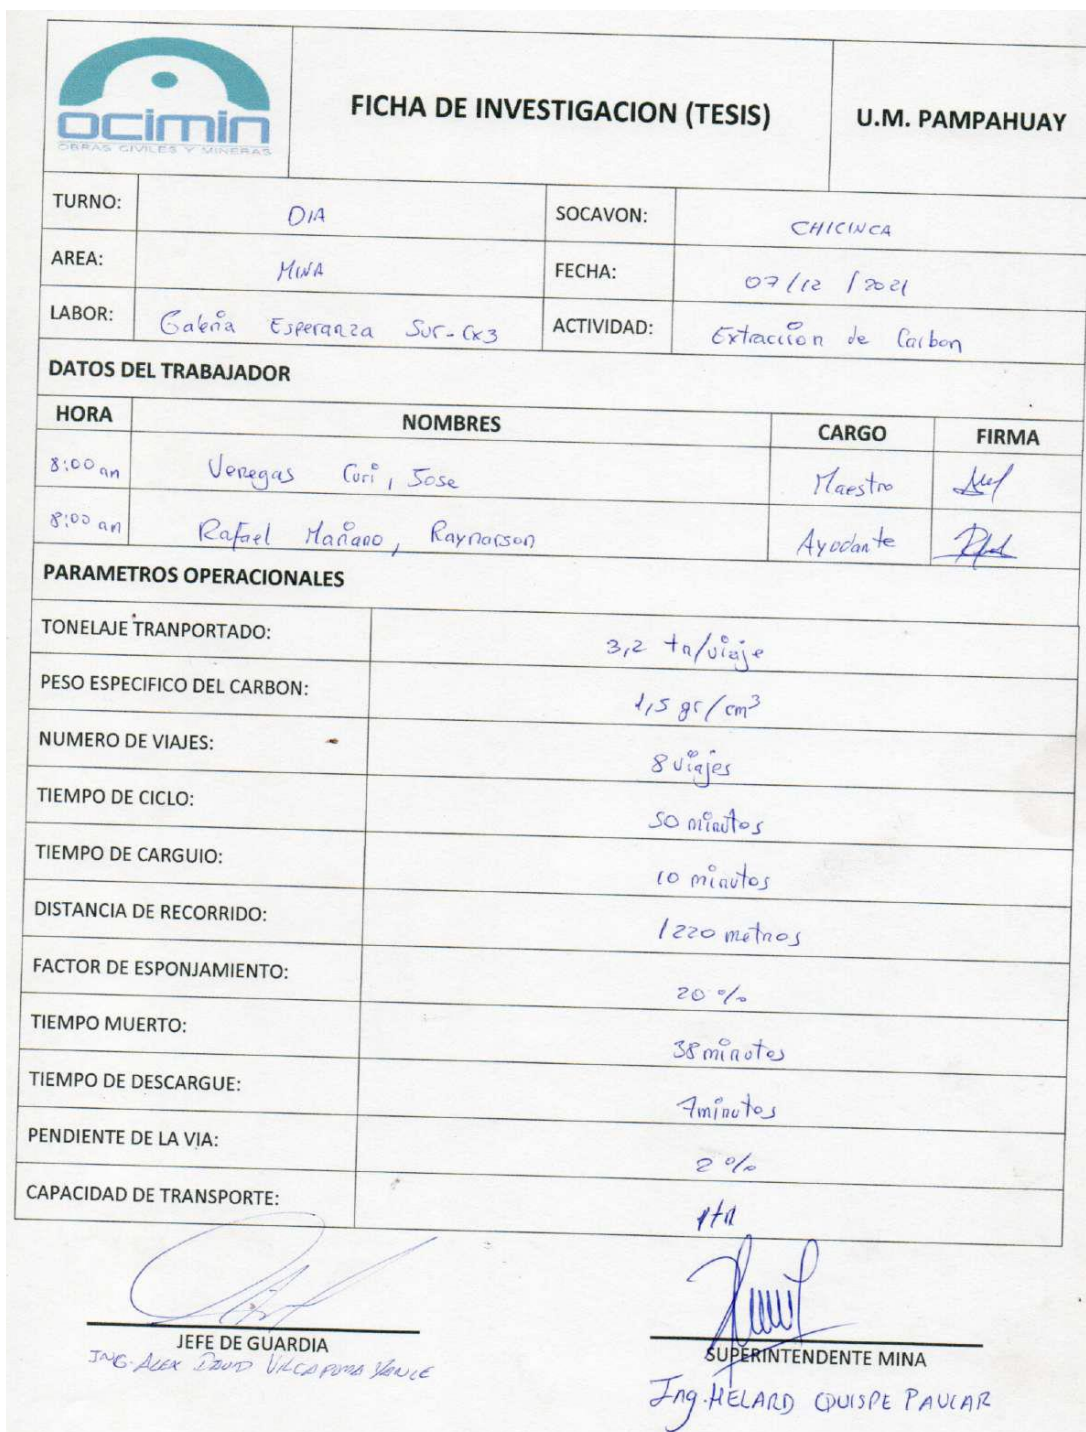 ocimin
OBRAS CIVILES Y MINERAS
FICHA DE INVESTIGACION (TESIS)
U.M. PAMPAHUAY
TURNO: DIA SOCAVON: CHICINCA
AREA: MINA FECHA: 07/12/2021
LABOR: Galeria Esperanza Sur-Cx3 ACTIVIDAD: Extracción de Carbon
DATOS DEL TRABAJADOR
HORA NOMBRES CARGO FIRMA
8:00 am Venegas Curi, Jose Maestro
8:00 am Rafael Mañano, Raynarson Ayudante
PARAMETROS OPERACIONALES
TONELAJE TRANPORTADO: 3,2 tn/viaje
PESO ESPECIFICO DEL CARBON: 1,5 gr/cm³
NUMERO DE VIAJES: 8 viajes
TIEMPO DE CICLO: 50 minutos
TIEMPO DE CARGUIO: 10 minutos
DISTANCIA DE RECORRIDO: 1220 metros
FACTOR DE ESPONJAMIENTO: 20 %
TIEMPO MUERTO: 38 minutos
TIEMPO DE DESCARGUE: 7 minutos
PENDIENTE DE LA VIA: 2 %
CAPACIDAD DE TRANSPORTE: 1 tn
JEFE DE GUARDIA
ING. ALEX DAVID
SUPERINTENDENTE MINA
Ing. HELARD QUISPE PAUCAR